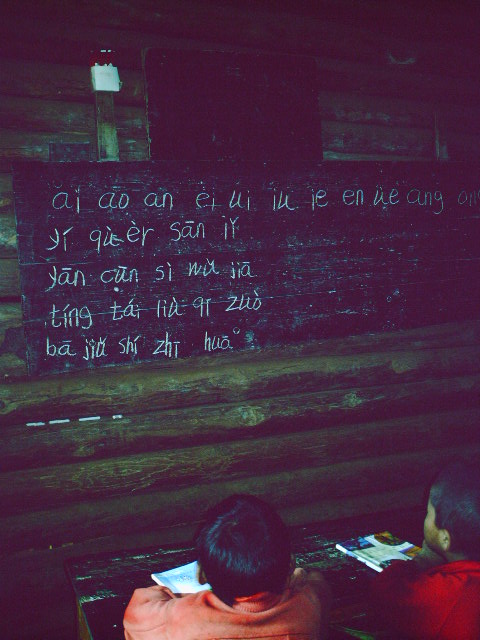 ai ao an ei ui iu ie en üe ang ong
yí qù èr sān lǐ
yān cūn sì wǔ jiā
tíng tái liù qī zuò
bā jiǔ shí zhī huā